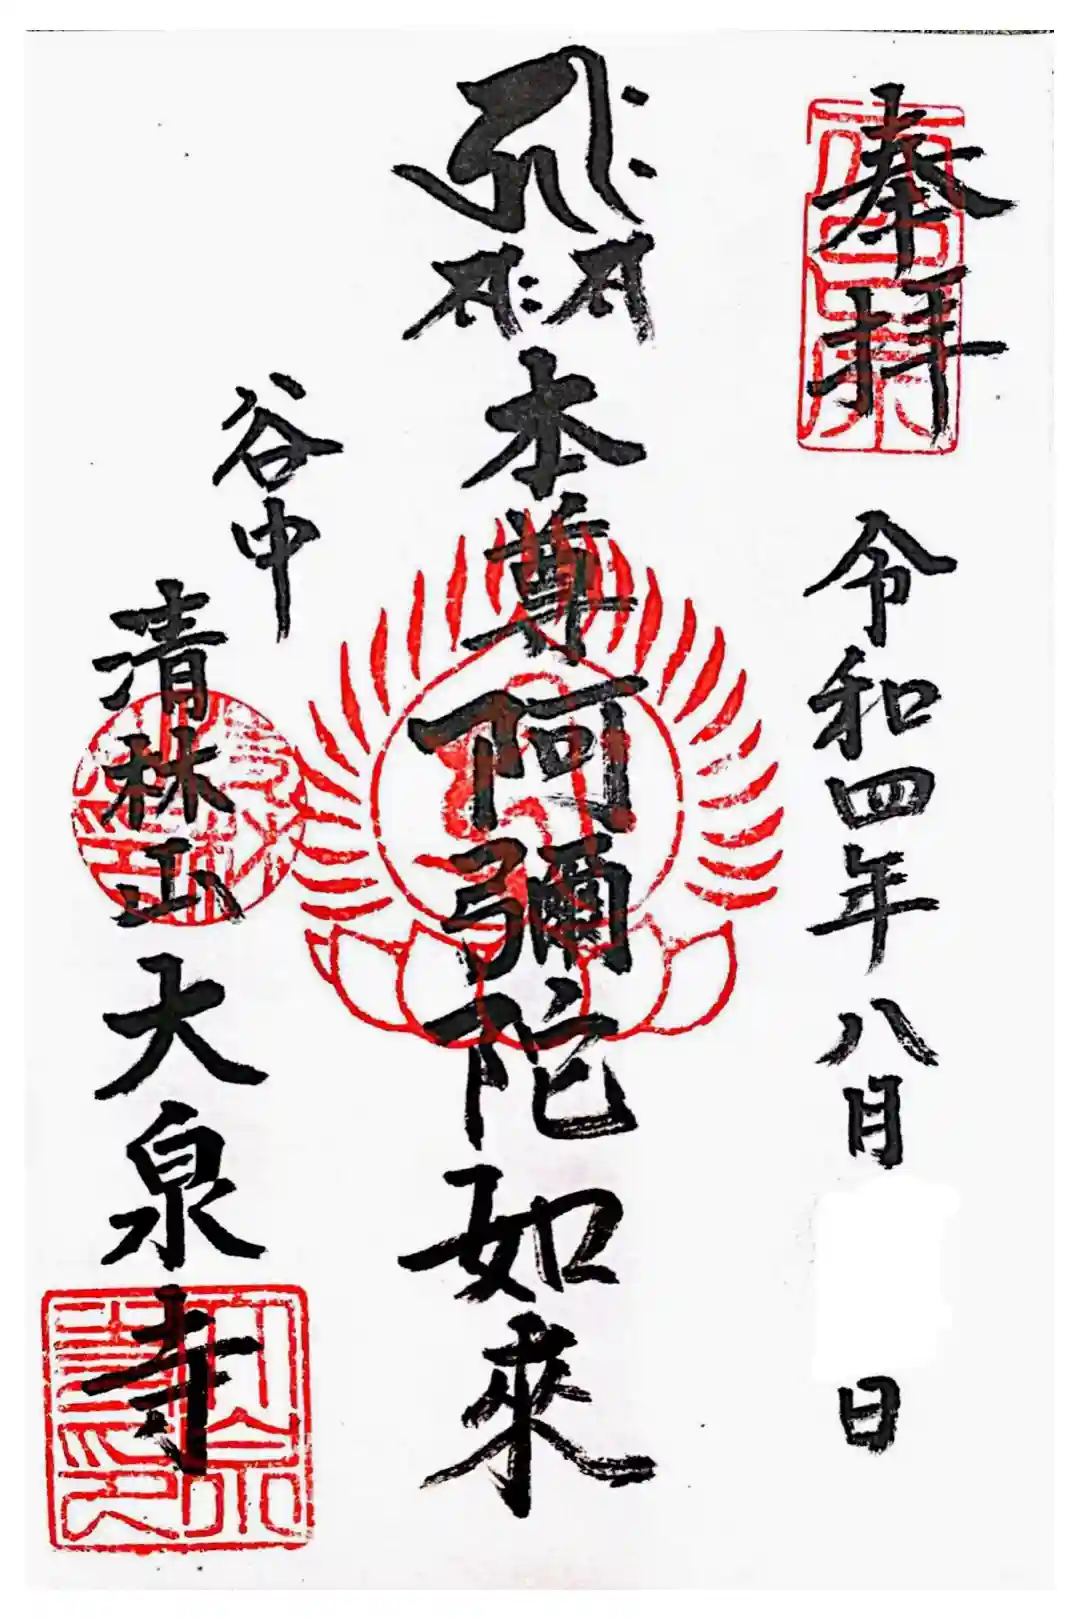 奉拝
令和四年八月
日
本尊阿彌陀如來
谷中
清林山大泉寺